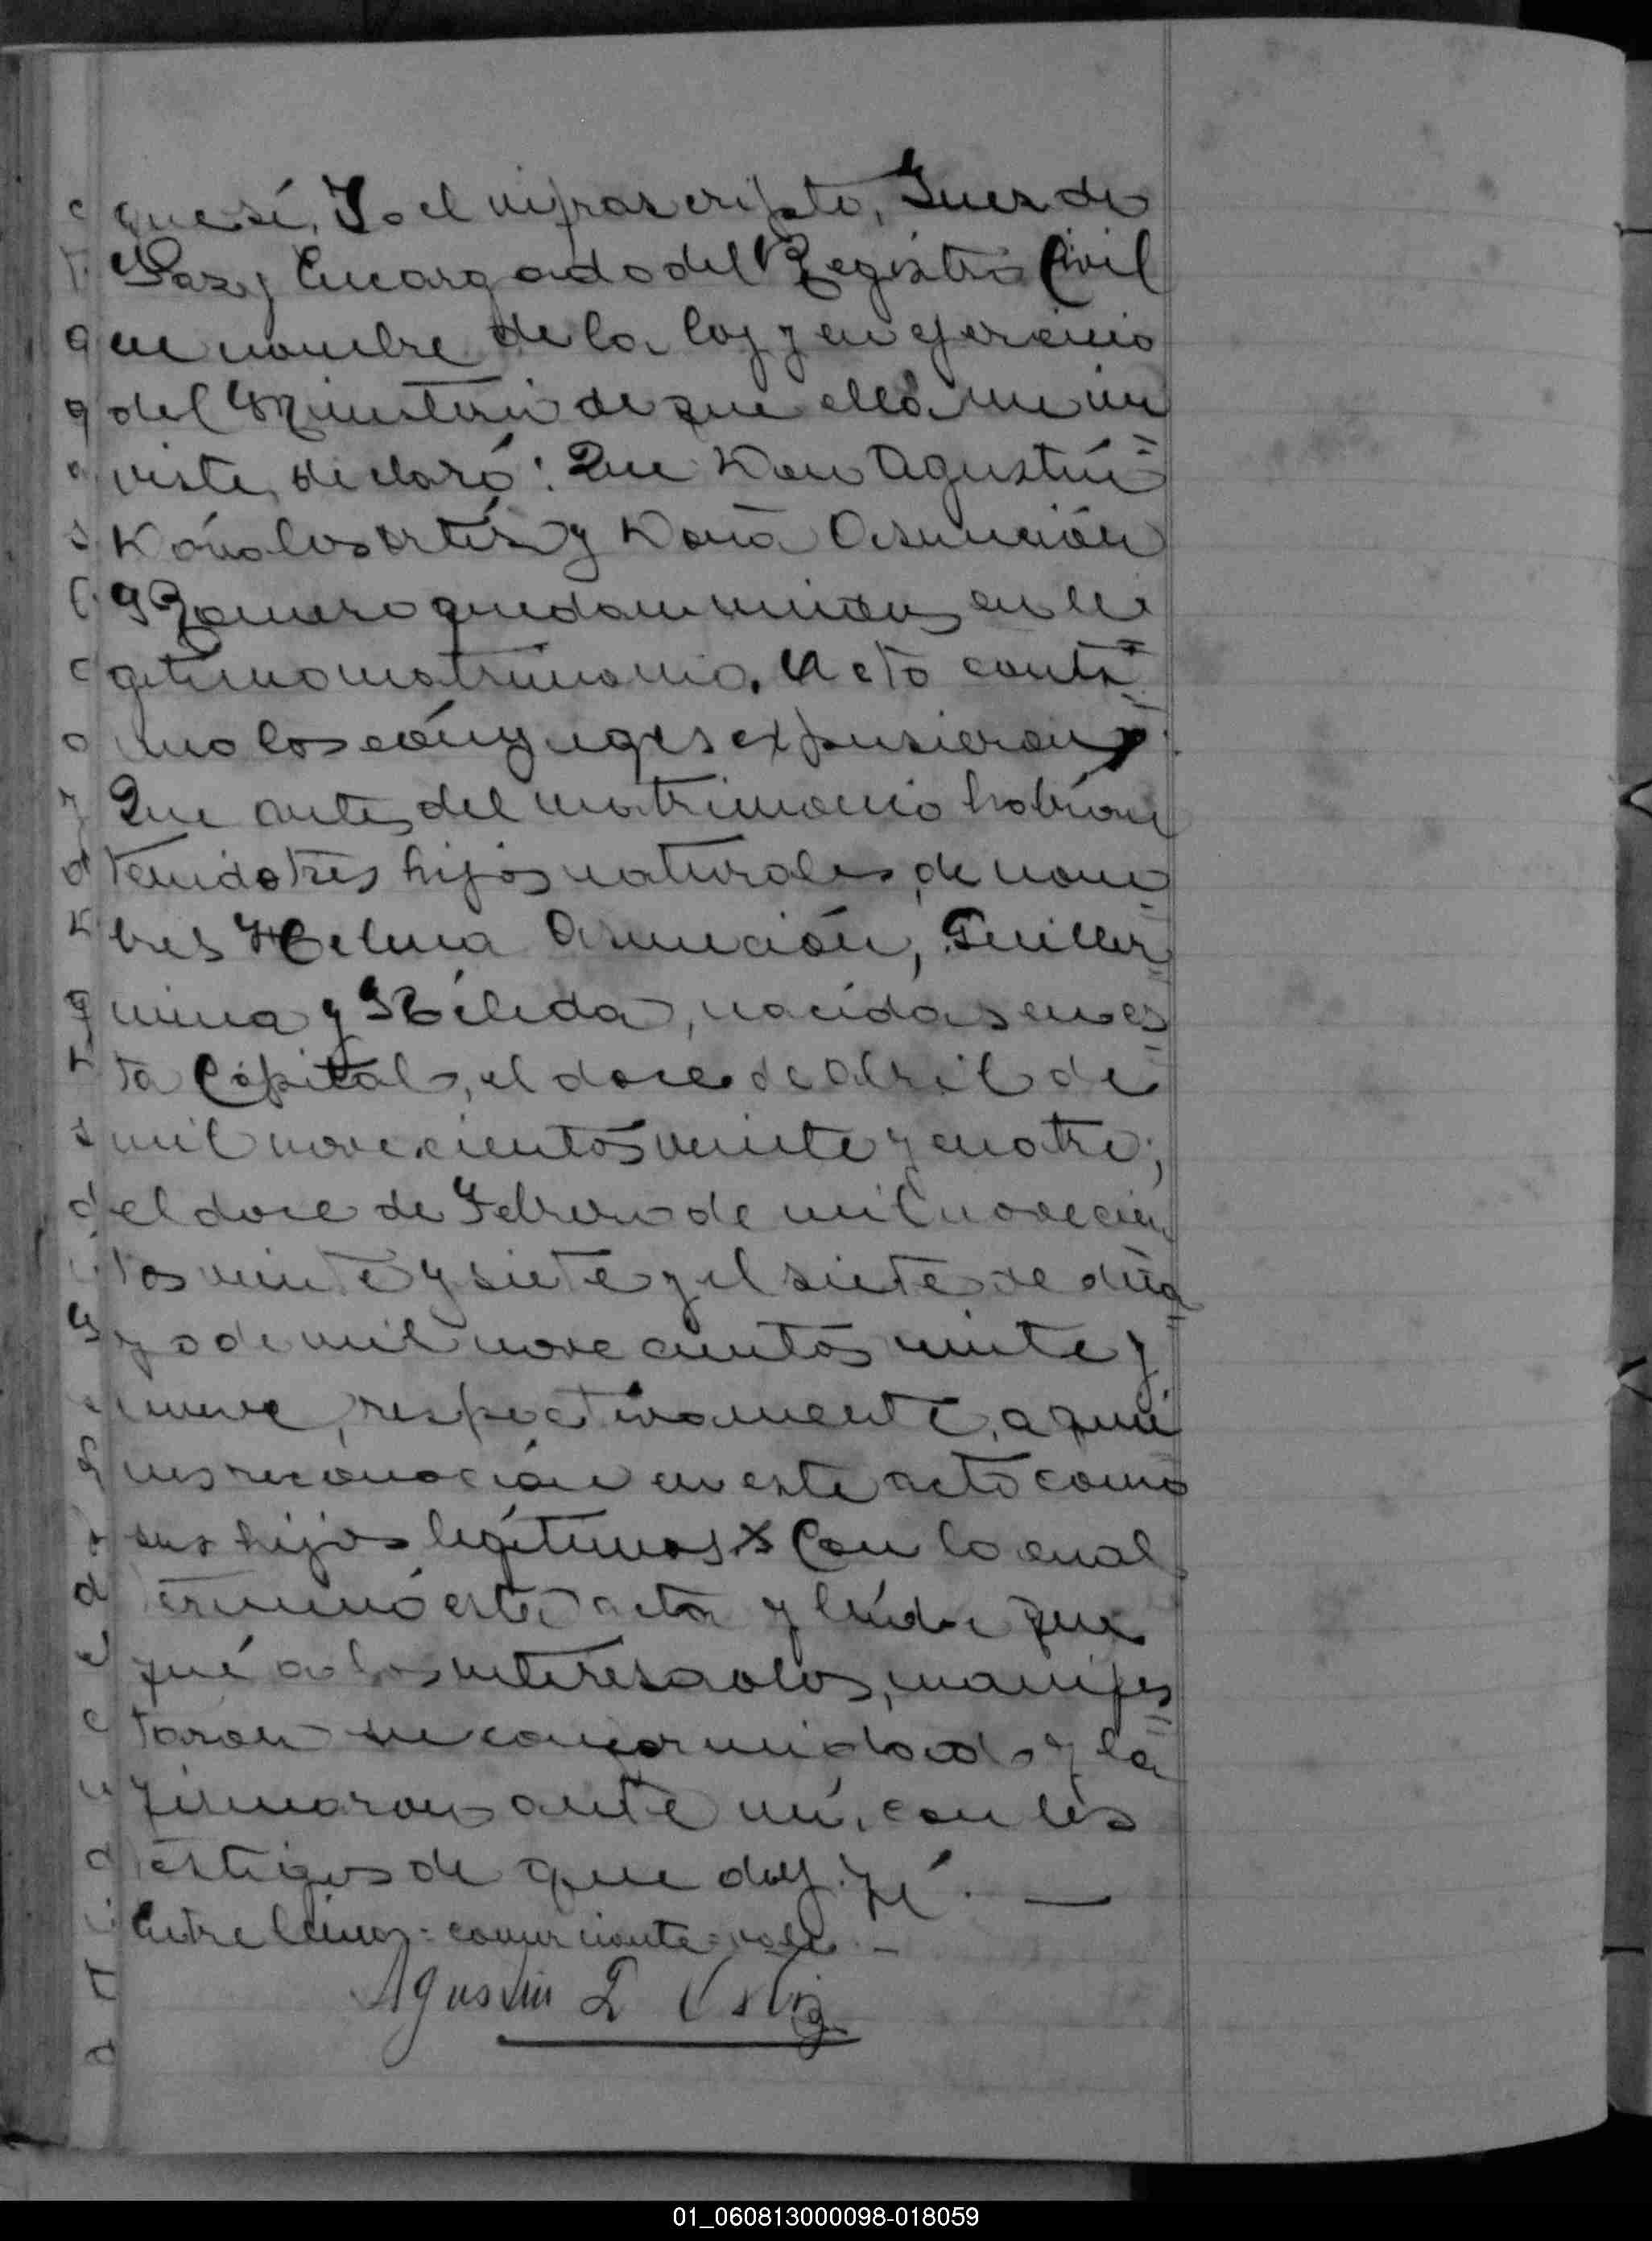 que sí, Yo el infrascripto, Juez de
Paz y Encargado del Registro Civil
en nombre de la ley y en ejercicio
del Ministerio de que ella me in
viste, declaró: Que Don Agustín
Dávalos Ortíz y Doña Asunción
Romero quedan unidos en le
gítimo matrimonio. Acto contí
nuo los cónyuges expusieron:
Que antes del matrimonio habían
tenido tres hijos naturales, de nom
bres Helma Asunción, Guiller
mina y Nélida, nacidas en es
ta Capital, el doce de Abril de
mil novecientos veinte y cuatro;
el doce de Febrero de mil novecien
tos veinte y siete y el siete de Ma
yo de mil novecientos veinte y
nueve, respectivamente, a quié
nes reconocían en este acto como
sus hijos legítimos. Con lo cual
terminó esta acta y leída que
fué a los interesados, manifes
taron su conformidad y la
firmaron ante mí, con los
testigos de que doy fé. —
Entre líneas: comerciante: vale. —
Agustin D Ortiz
01_060813000098-018059